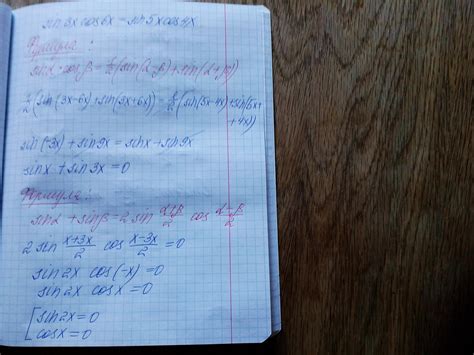 sin3x cos6x = sin5x cos4x
Формула:
sinα · cosβ = ½(sin(α-β) + sin(α+β))
½(sin(3x-6x)+sin(3x+6x)) = ½(sin(5x-4x)+sin(5x+
+4x))
sin(-3x)+sin9x = sinx+sin9x
sinx + sin3x = 0
Формула:
sinα + sinβ = 2 sin (α+β)/2 cos (α-β)/2
2 sin (x+3x)/2 cos (x-3x)/2 = 0
sin2x cos(-x) = 0
sin2x cosx = 0
[ sin2x = 0
cosx = 0